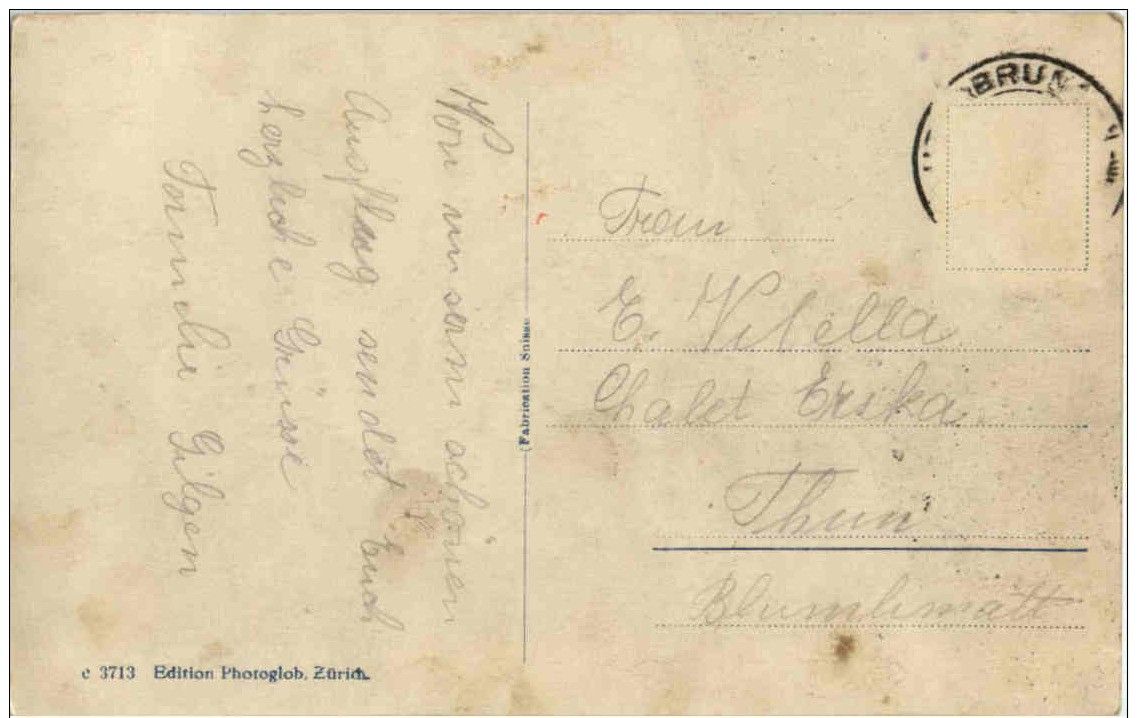 Von unserm schönen
Ausflug sendet Euch
herzliche Grüsse
Familie Gilgen
(Fabrication Suisse)
BRUN
Frau
E. Vilella
Chalet Erika
Thun
Blümlimatt
e 3713 Edition Photoglob, Zürich.